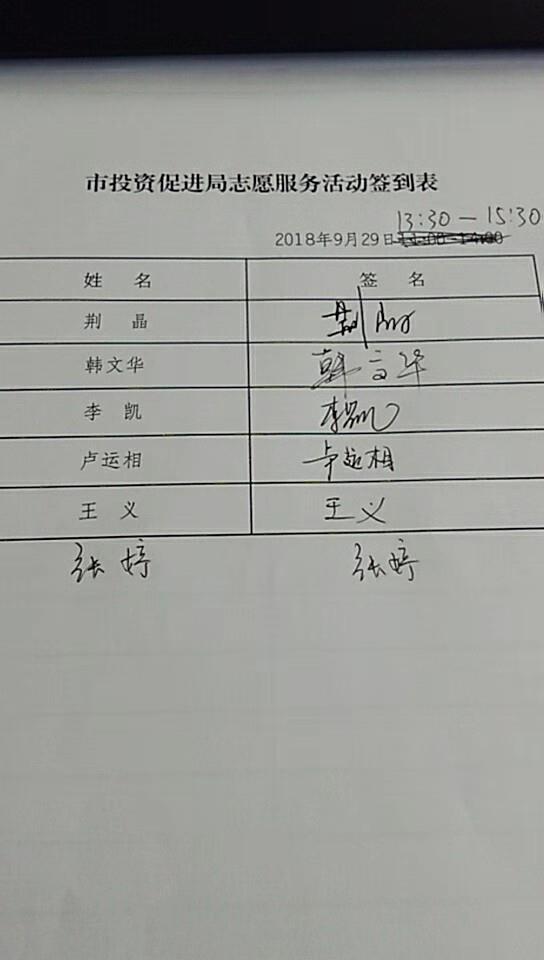 市投资促进局志愿服务活动签到表
13:30-15:30
2018年9月29日 11:00-14:00
姓 名 签 名
荆 晶 荆晶
韩文华 韩文华
李 凯 李凯
卢运相 卢运相
王 义 王义
张婷 张婷